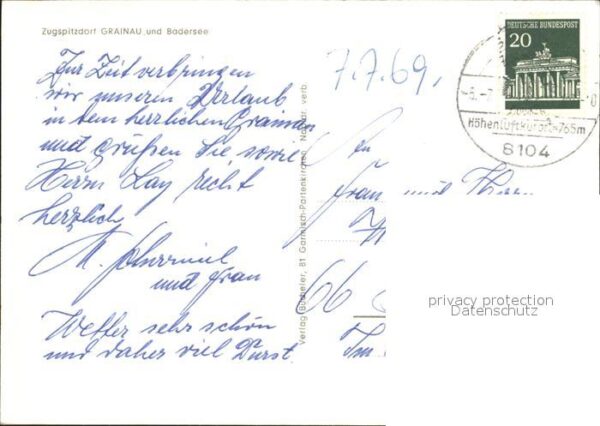 Zugspitzdorf GRAINAU und Badersee
Zur Zeit verbringen
wir unseren Urlaub
in dem herrlichen Grainau
und grüßen Sie sowie
Herrn Lay recht
herzlich
und Frau
Wetter sehr schön
und daher viel Durst.
Verlag Huber, 81 Garmisch-Partenkirchen Nachdr. verb.
7.7.69.
DEUTSCHE BUNDESPOST
20
Höhenluftkurort 765m
8104
An
Frau und Herrn
66
Im
privacy protection
Datenschutz